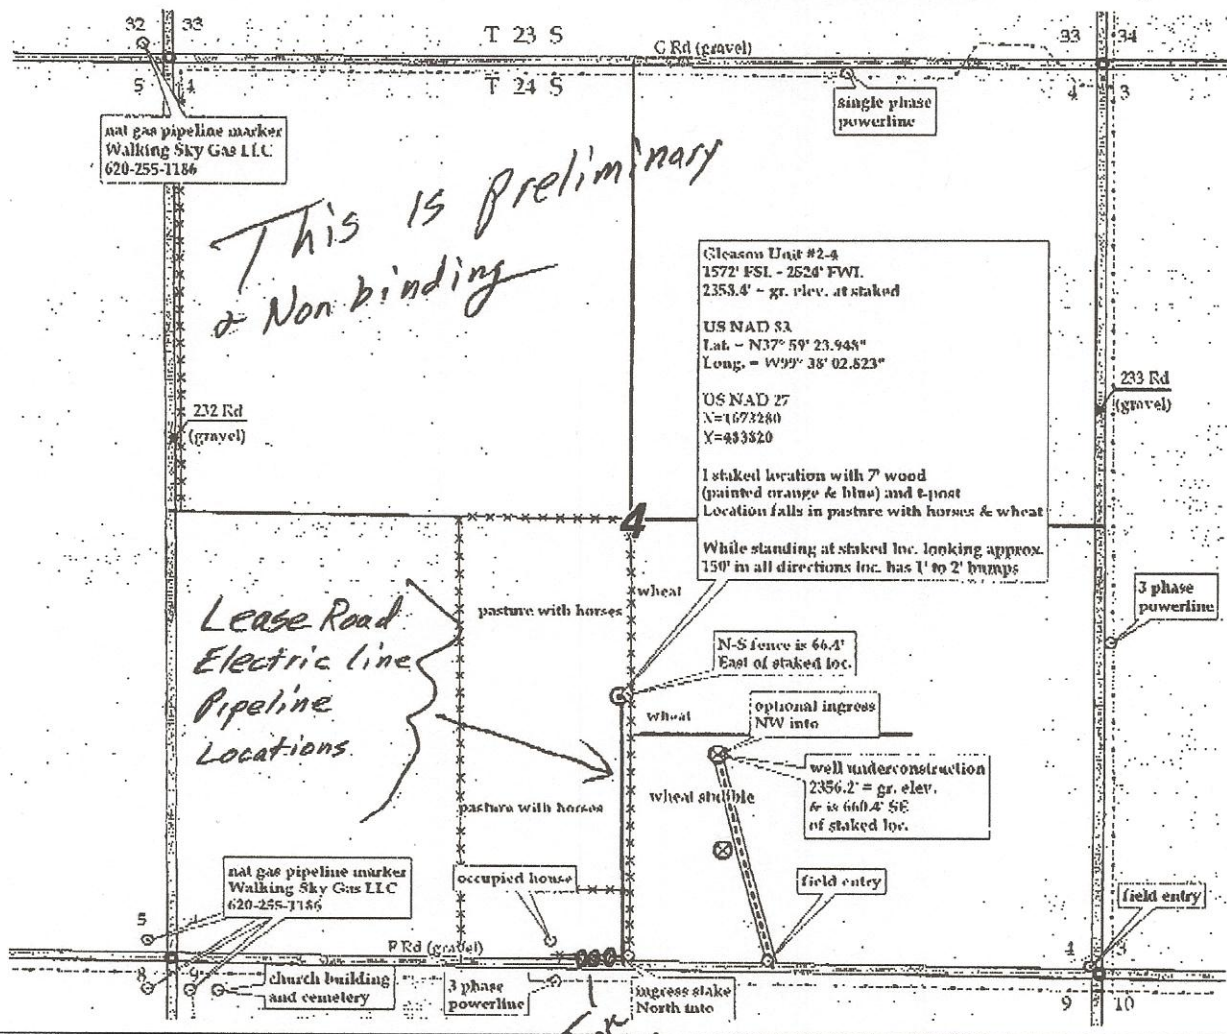 32 33
T 23 S
G Rd (gravel)
33 34
5 4
T 24 S
4 3
single phase
powerline
nat gas pipeline marker
Walking Sky Gas LLC
620-255-1186
This is Preliminary
& Non binding
Gleason Unit #2-4
1572' FSL - 2524' FWL
2358.4' = gr. elev. at staked
US NAD 83
Lat. = N37° 59' 23.948"
Long. = W99° 38' 02.823"
US NAD 27
X=1673280
Y=483820
I staked location with 7' wood
(painted orange & blue) and t-post
Location falls in pasture with horses & wheat
While standing at staked loc. looking approx.
150' in all directions loc. has 1' to 2' bumps
232 Rd
(gravel)
233 Rd
(gravel)
4
Lease Road
Electric line
Pipeline
Locations
pasture with horses
wheat
3 phase
powerline
N-S fence is 66.4'
East of staked loc.
wheat
optional ingress
NW into
well underconstruction
2356.2' = gr. elev.
& is 660.4' SE
of staked loc.
pasture with horses
wheat stubble
nat gas pipeline marker
Walking Sky Gas LLC
620-255-1186
occupied house
field entry
field entry
5
F Rd (gravel)
4 3
8 9
church building
and cemetery
3 phase
powerline
ingress stake
North into
9 10